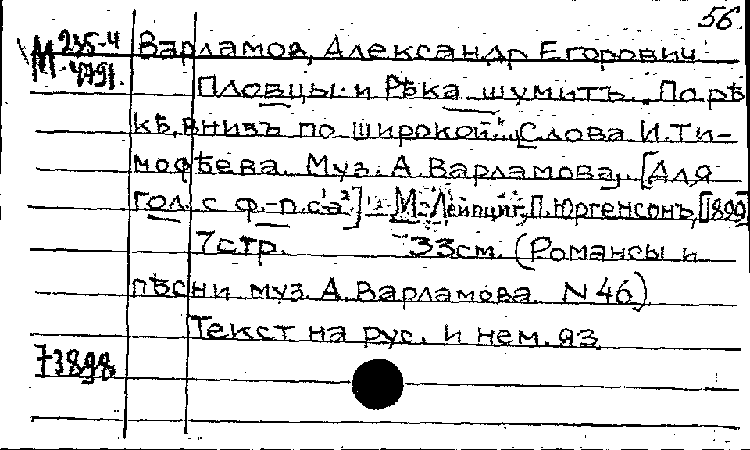 56
М 235-4
М-4791.
Варламов, Александр Егорович
Пловцы. и Рѣка шумитъ. По рѣ
кѣ, внизъ по широкой... Слова И. Ти-
мофѣева. Муз. А. Варламова. [Для
гол. с ф.-п.
М.-Лейпциг, П. Юргенсонъ,
7 стр. 33 см. (Романсы и
пѣсни муз. А. Варламова N 46)
Текст на рус. и нем. яз.
73898